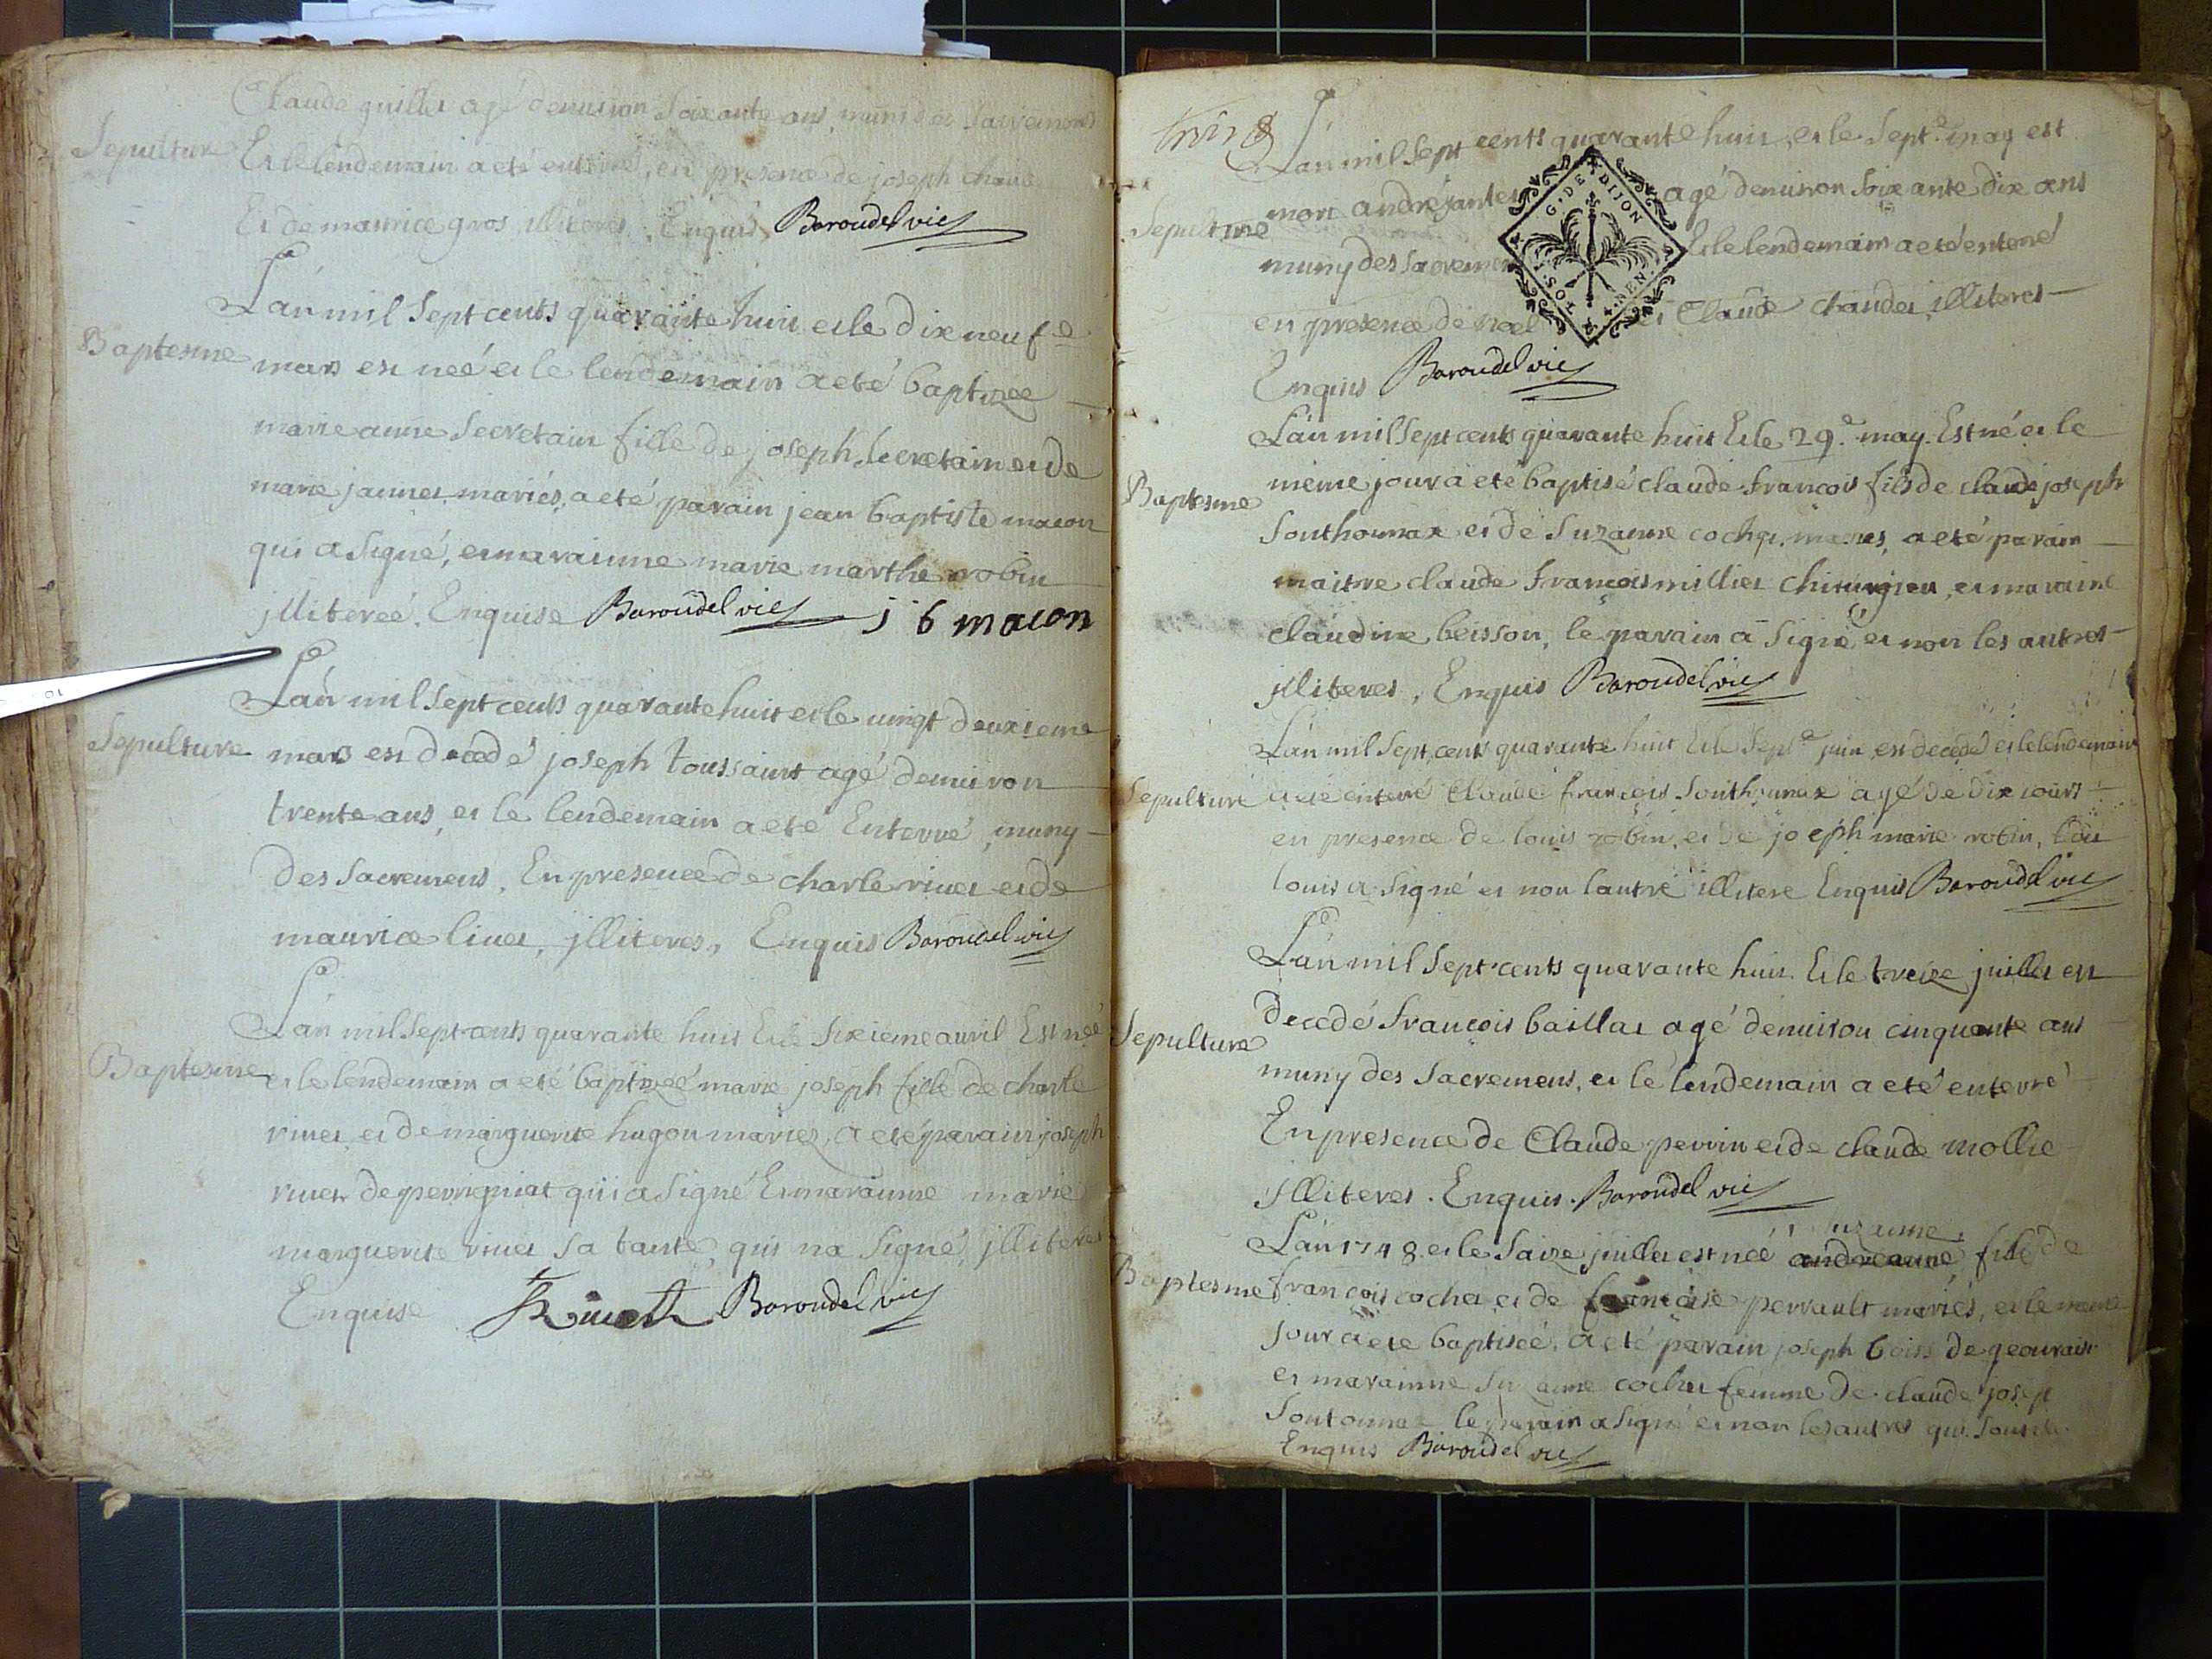 Claude guillet agé denviron Soixante ans, muni des Sacremens
Sepulture
Et le lendemain a eté enterré, en presence de joseph
Et de maurice gros illiteres, Enquis, Baroudel vic
Lan mil Sept cents quarante huit et le dix neufe
Baptesme
mars est neé et le lendemain a eté baptizeé
marie anne Secretain fille de joseph Secretain et de
marie jannet mariés, a eté parain jean baptiste macon
qui a Signé, et marainne marie marthe robin
jlliterée. Enquise Baroudel vic j b macon
Lan mil Sept cents quarante huit et le vingt deuxieme
Sepulture
mars est decedé joseph toussaint agé denviron
trente ans, et le lendemain a eté Enterré, muny
des Sacremens, En presence de charle rivet et de
maurice livet, jlliteres, Enquis Baroudel vic
Lan mil Sept cents quarante huit Et le Sixieme avril Est neé
Baptesme
et le lendemain a eté baptizeé marie joseph fille de charle
rivet et de marguerite hugon mariez, a eté parain joseph
rivet de perrigniat qui a Signé Et marainne marie
marguerite rivet Sa tante, qui na Signé, jlliterée
Enquise Rivett Baroudel vic
Lan mil Sept cents quarante huit, et le Sept.e may est
Sepulture
mort andré agé denviron Soixante dix ans
muny des Sacremen Et le lendemain a eté enterré
en presence de noel et Claude chaudet, illiteres
Enquis Baroudel vic
G. DE DIJON
Lan mil Sept cents quarante huit Et le 29.e may. Est né et le
Baptesme
même jour a eté baptisé claude francois fils de claude joseph
Southonnax et de Suzanne cochet. mariés, a eté parain
maitre claude francois milliet chirurgien, et maraine
claudine beisson, le parain a Signé et non les autres
jlliteres, Enquis Baroudel vic
Lan mil Sept cents quarante huit Et le Sept.e juin est decedé et le lendemain
Sepulture
a eté enterré Claude francois Southonnax agé de dix jours
en presence de louis robin, et de joseph marie robin, led
louis a Signé et non lautre illitere Enquis Baroudel vic
Lan mil Sept cents quarante huit. Et le treize juillet est
Sepulture
decedé francois baillat agé denviron cinquante ans
muny des Sacremens, et le lendemain a eté enterré
En presence de Claude perrin et de claude mollie
jlliteres. Enquis. Baroudel vic
Suzanne
Lan 1748 et le Saize juillet est neé fille de
Baptesme
francois cochet et de francoise perrault mariés, et le meme
jour a eté baptiseé, a eté parain joseph bois de geovraisi
et marainne Suzanne cochet femme de claude josep
Soutonnax le parain a Signé et non les autres qui
Enquis Baroudel vic